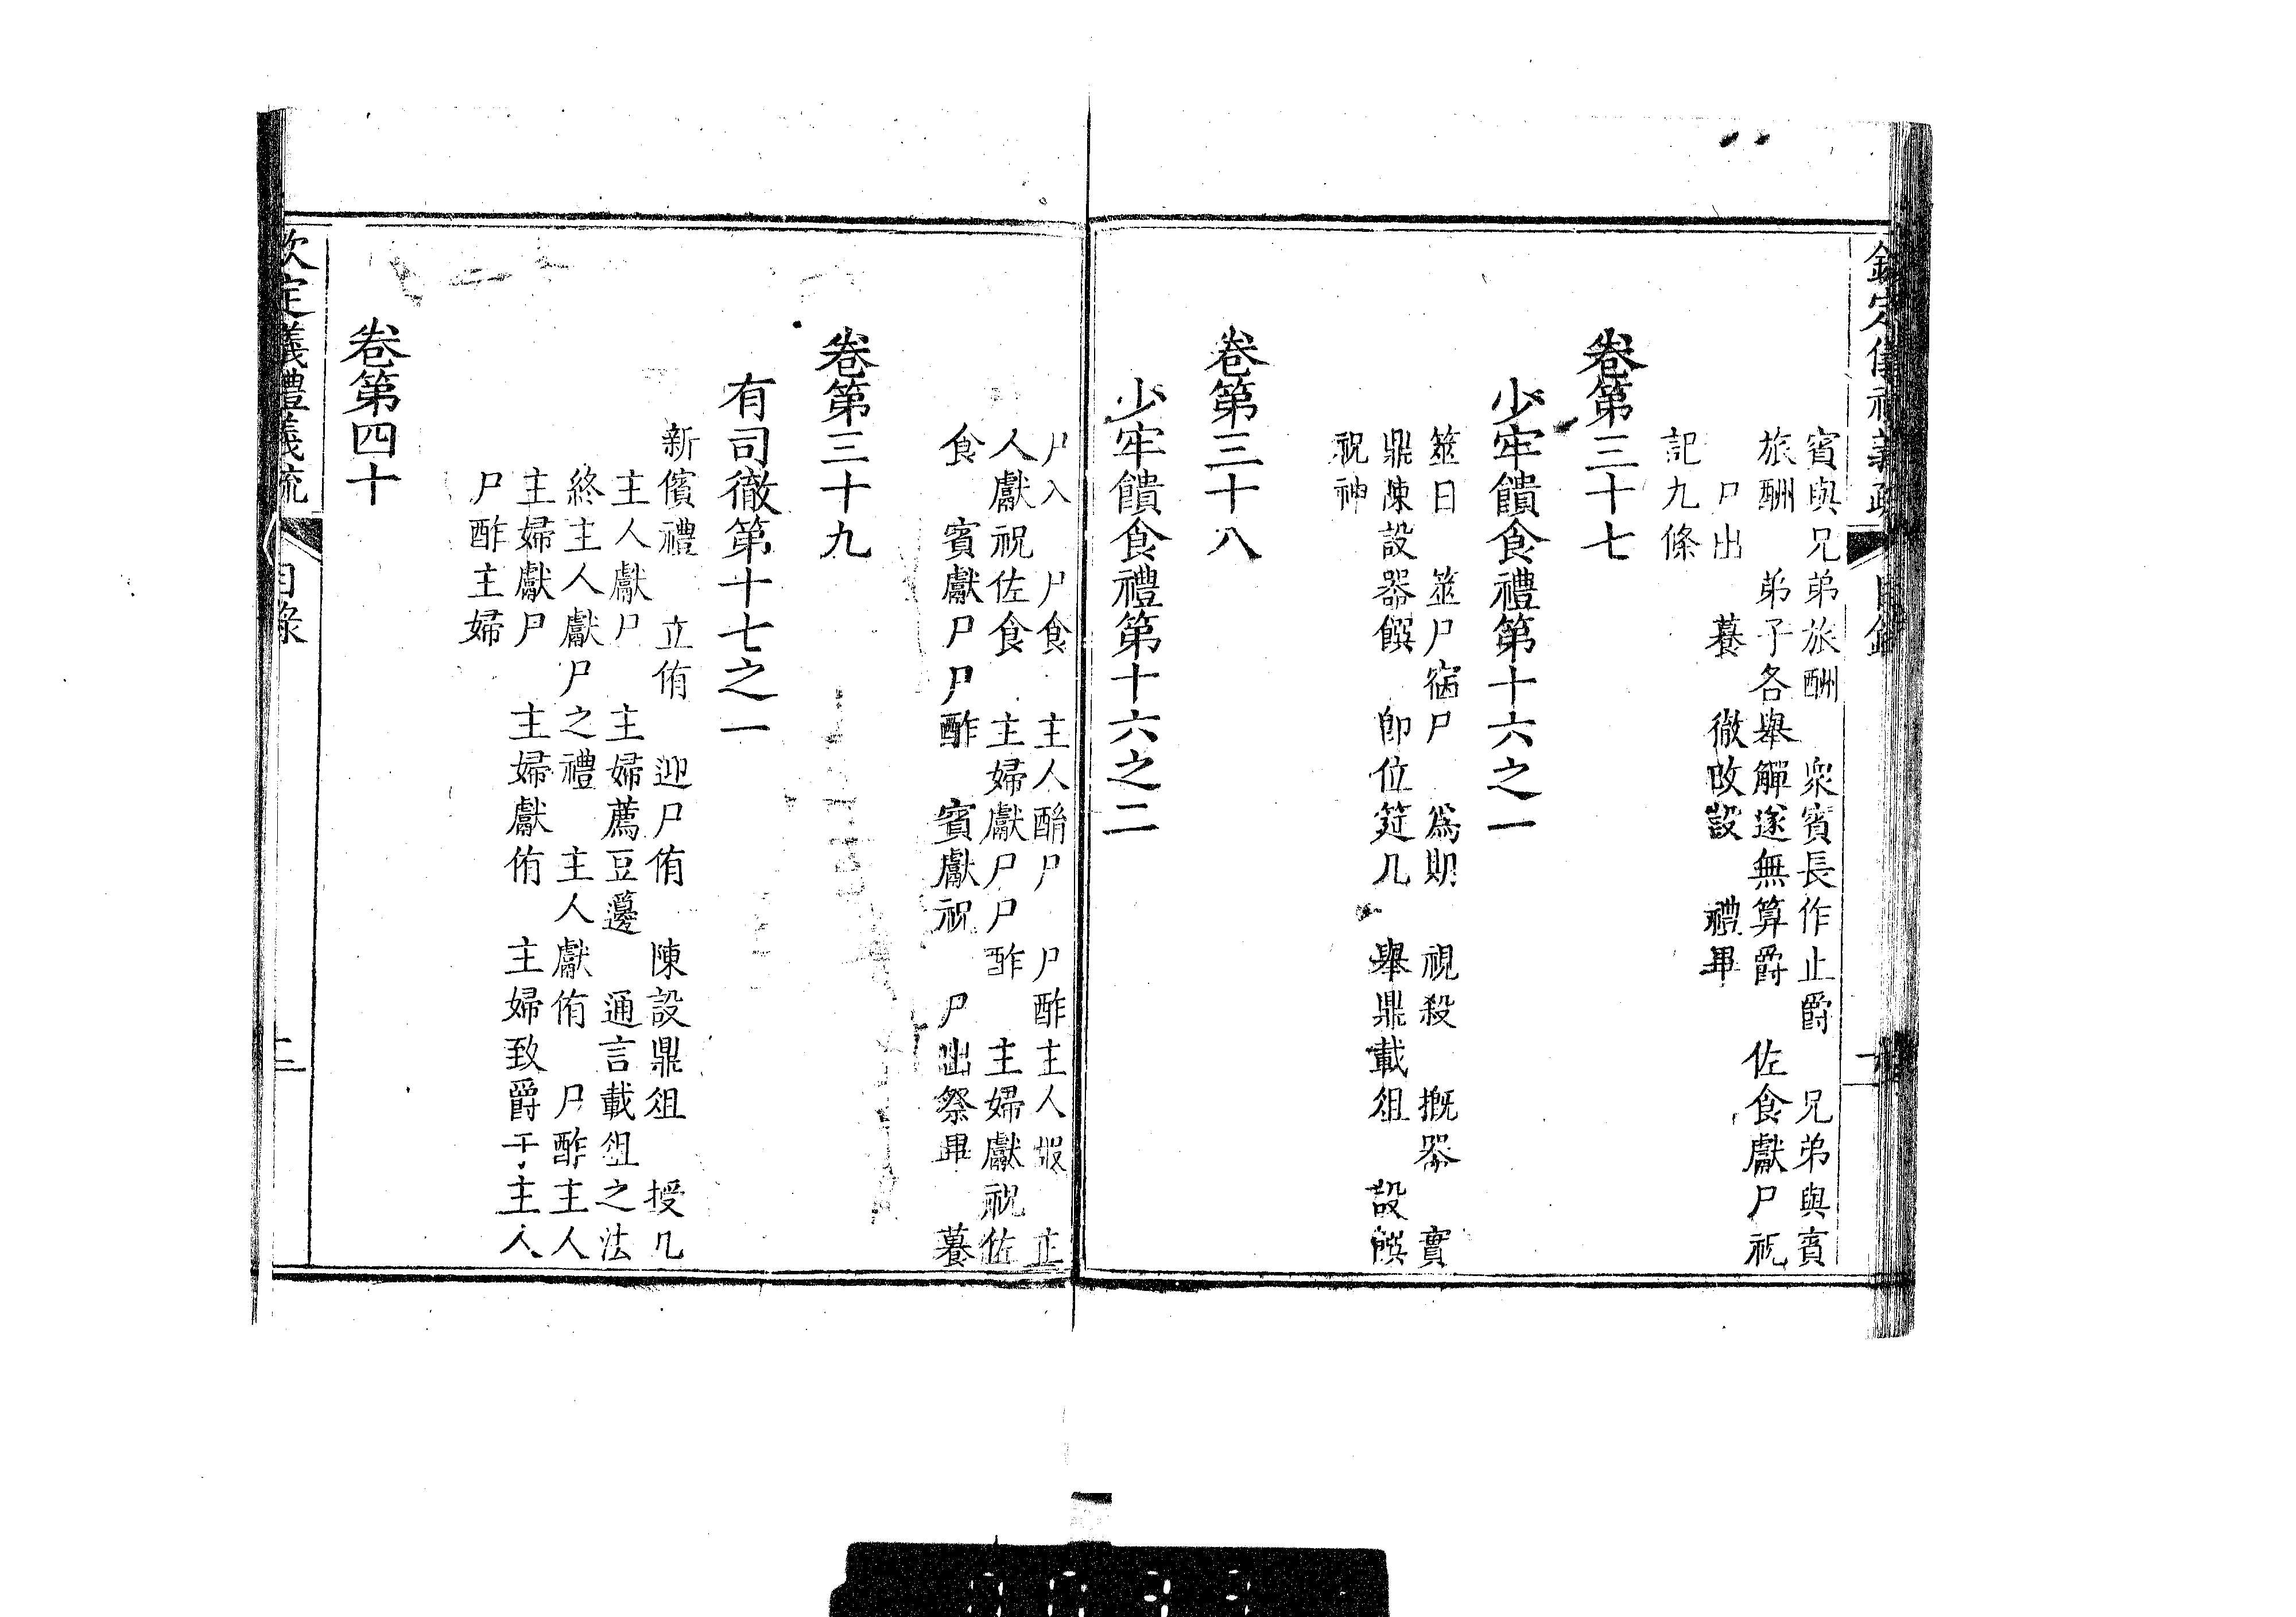 欽定儀禮義疏 目錄
賓與兄弟旅酬 衆賓長作止爵 兄弟與賓
旅酬 弟子各舉觶遂無算爵 佐食獻尸祝
尸出 蕽 徹改設 禮畢
記九條
卷第三十七
少牢饋食禮第十六之一
筮日 筮尸宿尸 爲期 視殺 摡器 實
鼎陳設器饌 卽位筵几 舉鼎載俎 設饌
祝神
卷第三十八
少牢饋食禮第十六之二
尸入 尸食 主人酳尸 尸酢主人嘏 主
人獻祝佐食 主婦獻尸尸酢 主婦獻祝佐
食 賓獻尸尸酢 賓獻祝 尸出祭畢 餕
卷第三十九
有司徹第十七之一
新儐禮 立侑 迎尸侑 陳設鼎俎 授几
主人獻尸 主婦薦豆籩 通言載俎之法
終主人獻尸之禮 主人獻侑 尸酢主人
主婦獻尸 主婦獻侑 主婦致爵于主人
尸酢主婦
卷第四十
欽定儀禮義疏 目錄